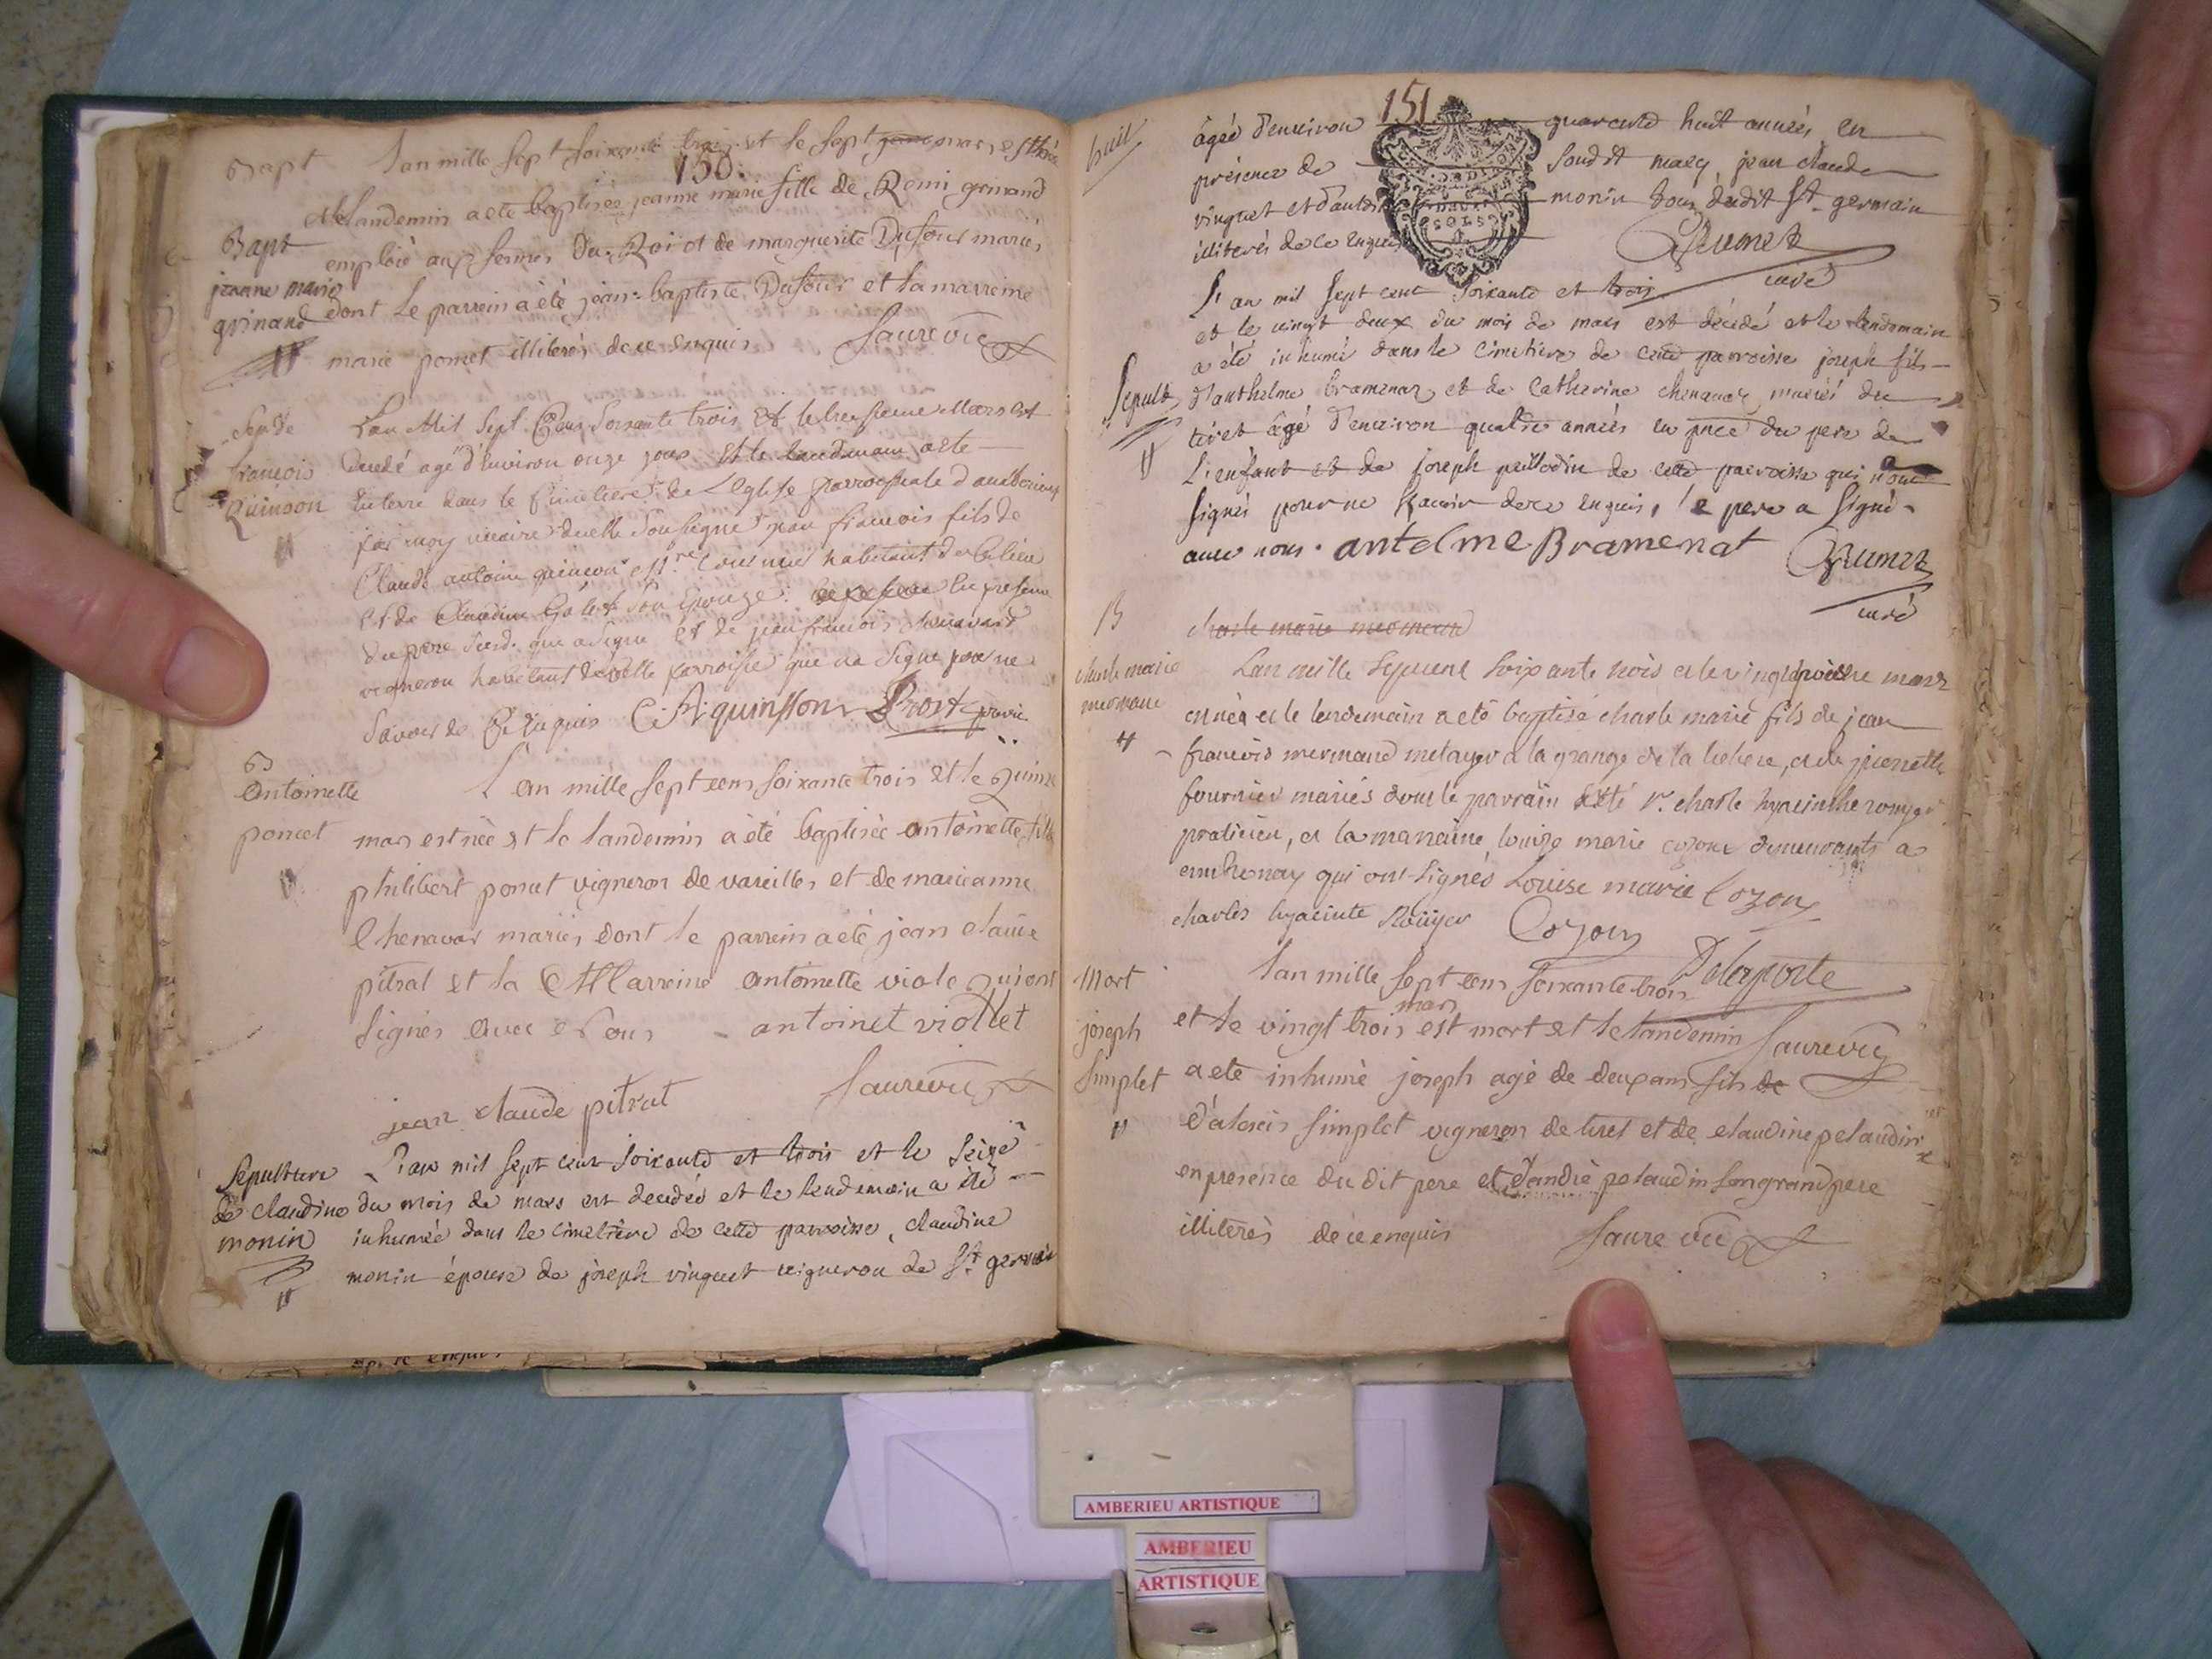 150.
Bapt
Lan mille sept soixante trois et le sept mars est née
et landemin a ete baptisée jeanne marie fille de Remi grinand
Bapt
jeanne marie
grinand
emploié aux fermes Du Roi et de marguerite Dufour mariés
dont le parrein a èté jean-baptiste Dufour et la marreine
marie pomet illiterés de ce enquis Saure vic
françois
Quinson
Lan Mil Sept Cens Soixante trois et le treisieme Mars est
decedé agé d'Environ onze jours Et le landemain a ete
enterré dans le Cimetiere de L'Eglise parroissiale d'ambérieux
par moy vicaire d'icelle soussigné jean françois fils de
Claude antoine quinson habitant de ce lieu
et de Claudine Galet son Epouze. En presence
du pere susd. que a signé et de jean françois chenavard
vigneron habitant de cette parroisse que na signé pour ne
Savoir de Ce Enquis C: A: quinsson Prost
B
Antoinette
poncet
L'an mille sept cens soixante trois et le quinze
mars est née et le landemin a été baptisée antoinette fille
philibert poncet vigneron de vareilles et de marieanne
Chenavar mariés dont le parrein a èté jean claude
pitrat et la Marreine antoinette violet qui ont
signés avec Nous - antoinet viollet
jean claude pitrat Saure vic
Sepulture
de claudine
monin
L'an mil sept cent soixante et trois et le seize
du mois de mars est decedée et le lendemain a été
inhumée dans le cimetiere de cette parroisse, claudine
monin épouse de joseph vinguet vigneron de St germain
151
âgée d'environ quarente huit années en
présence de jean claude
vinguet et d'antoine monin tous dudit St germain
illiterés de ce enquis
curé
L'an mil sept cent soixante et trois
et le vingt deux du mois de mars est décédé et le lendemain
a été inhumé dans le cimetiere de cette parroisse joseph fils
Sepult
d'anthelme bramenaz et de Catherine chenavaz mariés du
tiret âgé d'environ quatre années en pnce du pere de
L'enfant et de joseph peillodin de cette parroisse qui n'ont
signés pour ne sçavoir de ce enquis, le pere a signé
avec nous. antelme Bramenat
curé
B
charle marie mermand
charle marie
mermand
Lan mille septcent soixante trois et le vingtroisie mars
est née et le lendemain a eté baptisé charle marie fils de jean
françois mermand metayer a la grange de la et de pierrette
fournier mariés dont le parrain a été sr. charle hyacinthe rouyer
praticien, et la marraine louize marie cozon demeurants a
ambronay qui ont signés Louise marie Cozon
charles hyacinte Roüyer Cozon
Delaporte
Mort
joseph
simplet
Lan mille sept cens soixante trois
et le vingt trois mars est mort et le landemin Saure vic
a eté inhumé joseph agé de deux ans fils de
d'alexis simplet vigneron de tiret et de claudine pelaudin
en presence du dit pere et d'andré pelaudin son grand pere
illiterés de ce enquis Saure vic
AMBERIEU ARTISTIQUE
AMBERIEU
ARTISTIQUE